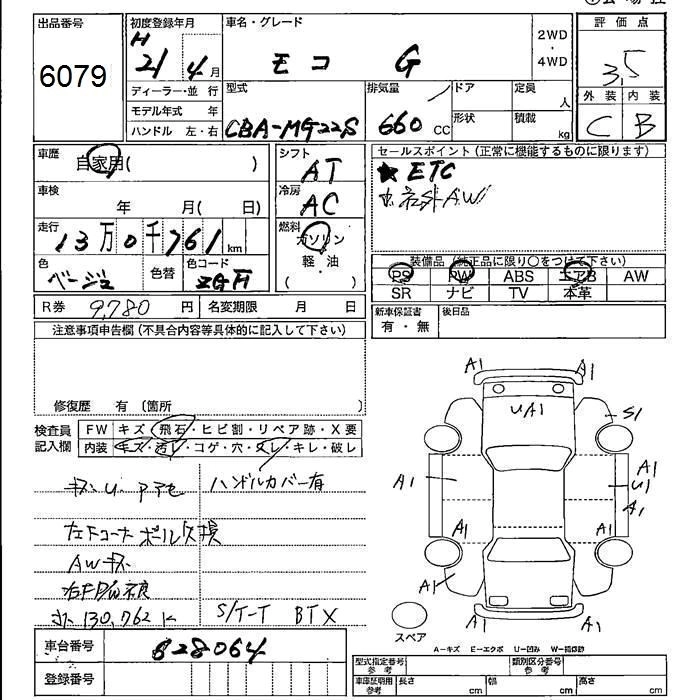 出品番号
6079
初度登録年月
H
21 4 月
ディーラー・並 行
モデル年式 年
ハンドル 左・右
車名・グレード
モコ G
2WD
4WD
型式
CBA-MG22S
排気量
660 CC
ドア
形状
定員
人
積載
kg
評価点
3.5
外装 内装
C B
車歴
自家用( )
車検
年 月( 日)
走行
13万0千761 km
色
ベージュ
色替
色コード
シフト
AT
冷房
AC
燃料
ガソリン
軽・油
( )
セールスポイント(正常に機能するものに限ります)
★ETC
ホ 社外AW
装備品(純正品に限り○をつけて下さい)
PS PW ABS エアB AW
SR ナビ TV 本革
R券 9,780 円 名変期限 月 日
新車保証書
有・無
後日品
注意事項申告欄(不具合内容等具体的に記入して下さい)
修復歴 有〔箇所 〕
検査員
記入欄
FW キズ・飛石・ヒビ割・リペア跡・X要
内装 キズ・汚レ・コゲ・穴・スレ・キレ・破レ
ハンドルカバー有
左Fコーナーポール欠損
AWキズ
右F P/W不良
130,762K
S/T-T BTX
車台番号 628064
登録番号
A1 A1
UA1
S1
A1
A1
U1
A1
A1 A1
A1
A1 A1
スペア
A-キズ E-エクボ U-凹み W-補修跡
型式指定番号
参考
類別区分番号
参考
車庫証明用
参考
長さ cm 幅 cm 高さ cm